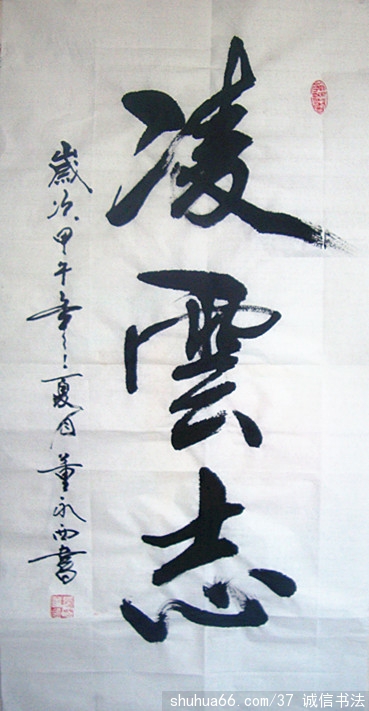 凌雲志
歲次甲午年之夏月董永西書
shuhua66.com/37 诚信书法